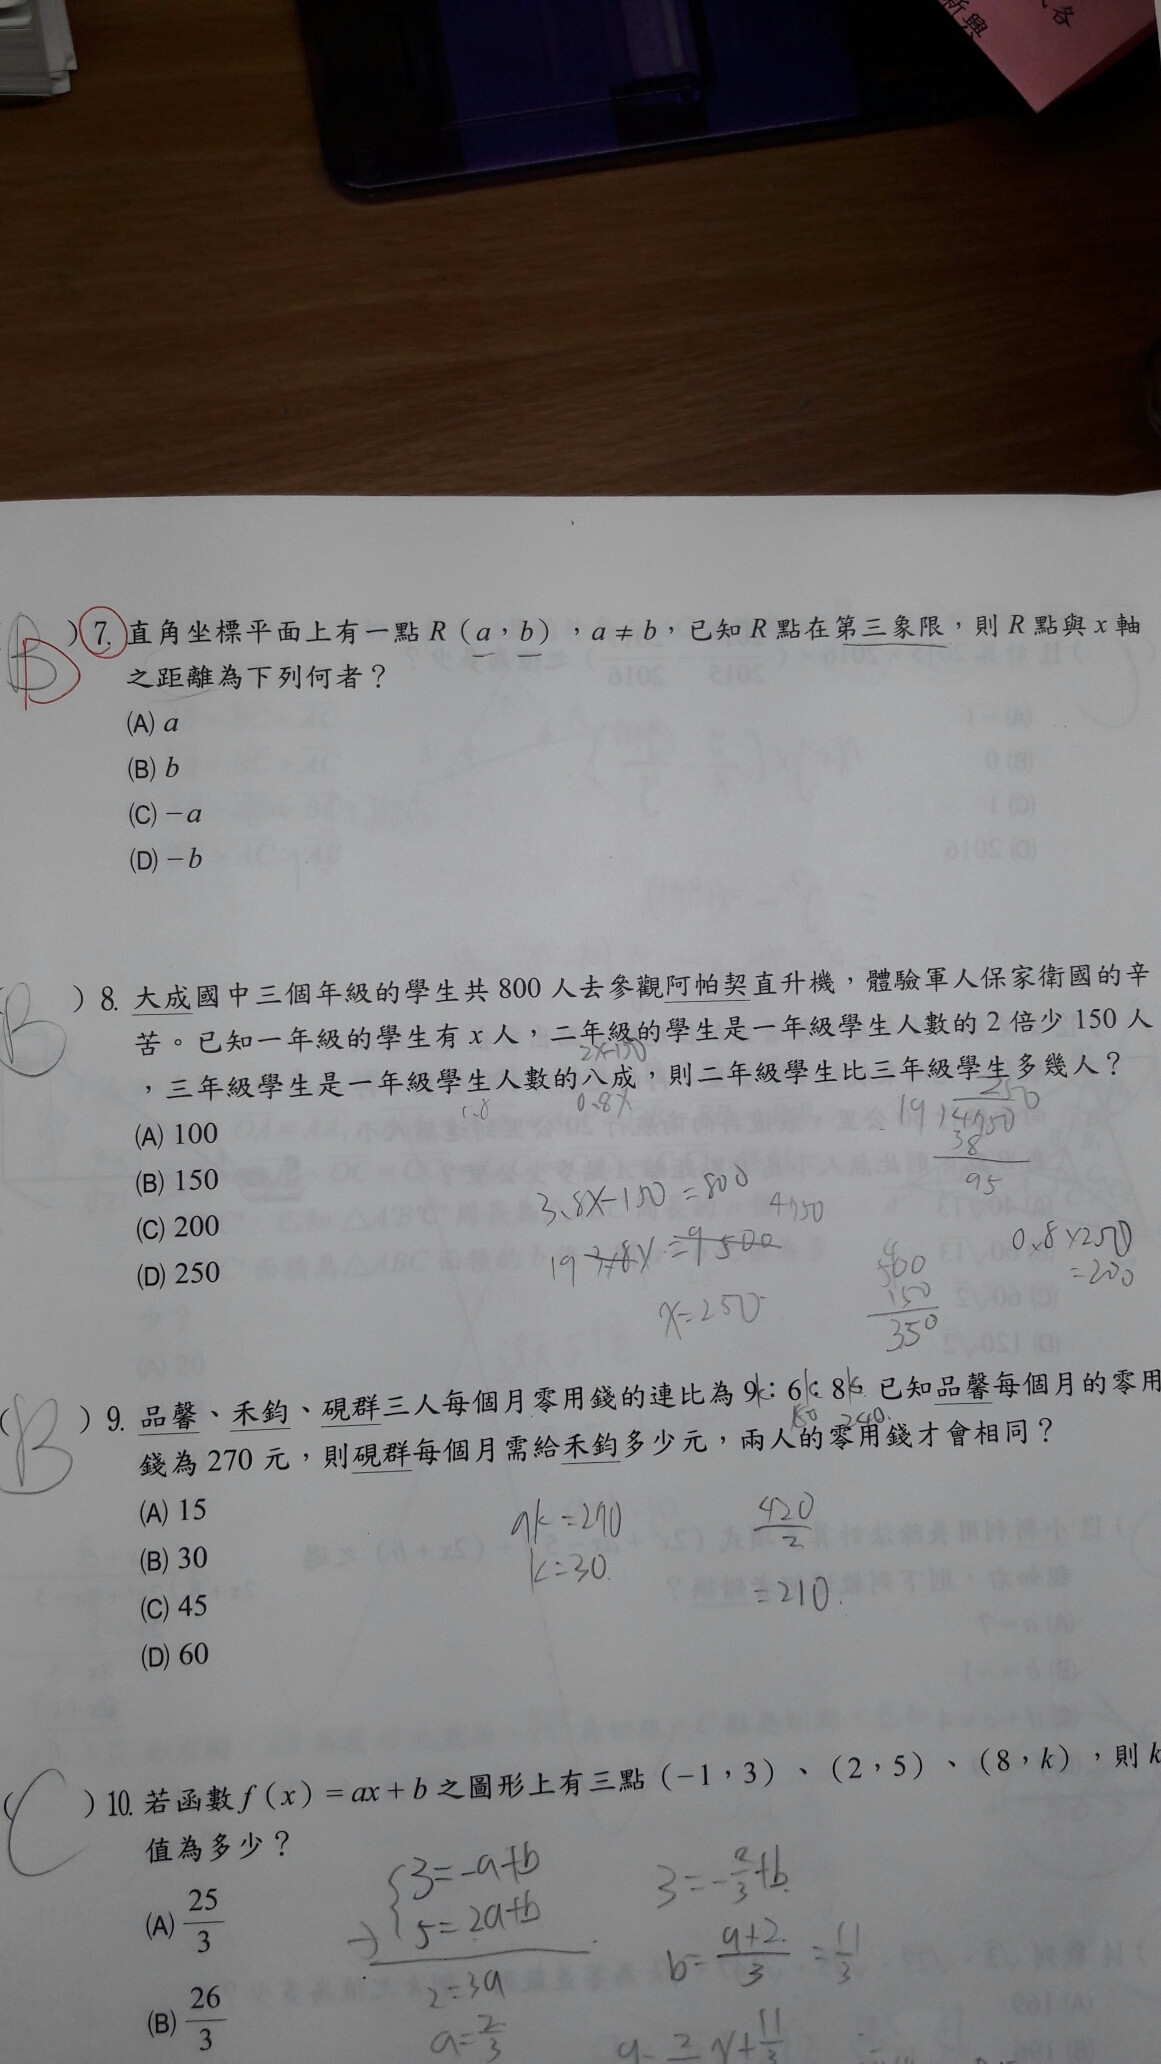 新興
各
B
D
) 7. 直角坐標平面上有一點 R (a,b),a ≠ b,已知 R 點在第三象限,則 R 點與 x 軸
之距離為下列何者?
(A) a
(B) b
(C) −a
(D) −b
B
) 8. 大成國中三個年級的學生共 800 人去參觀阿帕契直升機,體驗軍人保家衛國的辛
苦。已知一年級的學生有 x 人,二年級的學生是一年級學生人數的 2 倍少 150 人
2x-150
,三年級學生是一年級學生人數的八成,則二年級學生比三年級學生多幾人?
1.8
0.8x
(A) 100
(B) 150
(C) 200
(D) 250
3.8x-150=800
4750
19 3.8x = 9500
x=250
250
19 4750
38
95
500
150
350
0.8×250
=200
B
) 9. 品馨、禾鈞、硯群三人每個月零用錢的連比為 9k: 6k: 8k. 已知品馨每個月的零用
180
240.
錢為 270 元,則硯群每個月需給禾鈞多少元,兩人的零用錢才會相同?
(A) 15
(B) 30
(C) 45
(D) 60
9k=270
k=30.
420
2
=210.
C
) 10. 若函數 f (x) = ax + b 之圖形上有三點 (−1,3)、(2,5)、(8,k),則 k
值為多少?
(A) 25/3
(B) 26/3
3=-a+b
5=2a+b
2=3a
a=2/3
3=-2/3+b.
b= 9+2/3 = 11/3
y= 2/3 x+ 11/3